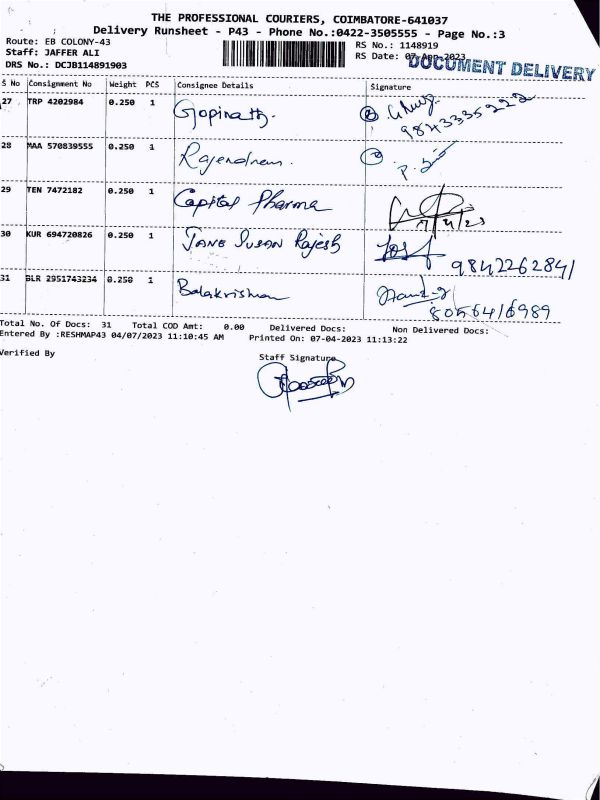 THE PROFESSIONAL COURIERS, COIMBATORE-641037
Delivery Runsheet - P43 - Phone No.:0422-3505555 - Page No.:3
Route: EB COLONY-43
RS No.: 1148919
Staff: JAFFER ALI
RS Date: 07-Apr-2023
DOCUMENT DELIVERY
DRS No.: DCJB114891903
S No Consignment No Weight PCS Consignee Details Signature
27 TRP 4202984 0.250 1 Gopinath. 9843335222
28 MAA 570839555 0.250 1 Rajendran.
29 TEN 7472182 0.250 1 Capital Pharma 7/4/23
30 KUR 694720826 0.250 1 JANE SUSAN Rajesh 9842262841
31 BLR 2951743234 0.250 1 Balakrishnan 8056416989
Total No. Of Docs: 31 Total COD Amt: 0.00 Delivered Docs: Non Delivered Docs:
Entered By :RESHMAP43 04/07/2023 11:10:45 AM Printed On: 07-04-2023 11:13:22
Verified By
Staff Signature